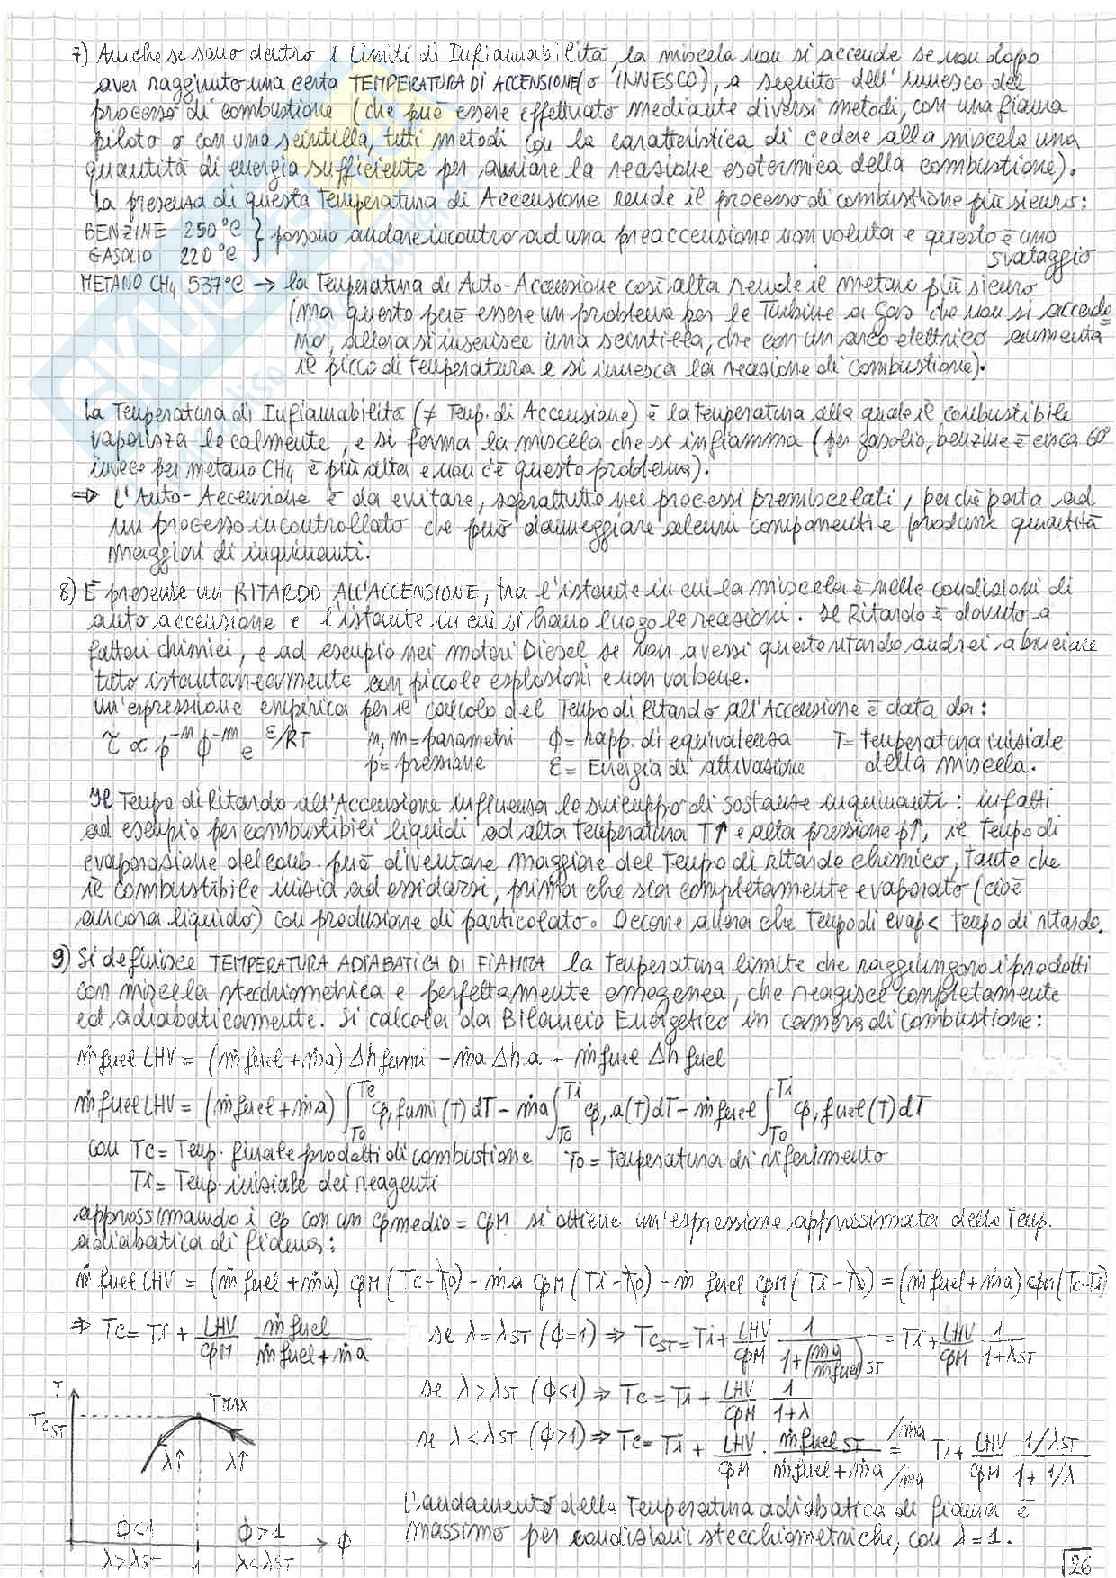 7) Anche se sono dentro i limiti di Infiammabilità, la miscela non si accende se non dopo
aver raggiunto una certa TEMPERATURA DI ACCENSIONE (o INNESCO), a seguito dell'innesco del
processo di combustione (che può essere effettuato mediante diversi metodi, con una fiamma
pilota o con una scintilla, tutti metodi con la caratteristica di cedere alla miscela una
quantità di energia sufficiente per avviare la reazione esotermica della combustione).
La presenza di questa Temperatura di Accensione rende il processo di combustione più sicuro:
BENZINE 250°C } possono andare incontro ad una preaccensione non voluta e questo è uno
GASOLIO 220°C svataggio
METANO CH4 537°C → la Temperatura di Auto-Accensione così alta rende il metano più sicuro
(ma questo può essere un problema per le Turbine a Gas che non si accendo=
no, allora si inserisce una scintilla, che con un arco elettrico aumenta
il picco di temperatura e si innesca la reazione di combustione).
La Temperatura di Infiammabilità (≠ Temp. di Accensione) è la temperatura alla quale il combustibile
vaporizza localmente, e si forma la miscela che si infiamma (per gasolio, benzine è circa 60°
invece per metano CH4 è più alta e non c'è questo problema).
⇒ L'Auto-Accensione è da evitare, soprattutto nei processi premiscelati, perché porta ad
un processo incontrollato che può danneggiare alcuni componenti e produrre quantità
maggiori di inquinanti.
8) È presente un RITARDO ALL'ACCENSIONE, tra l'istante in cui la miscela è nelle condizioni di
auto accensione e l'istante in cui si hanno luogo le reazioni. Il Ritardo è dovuto a
fattori chimici, e ad esempio nei motori Diesel se non avessi questo ritardo andrei a bruciare
tutto istantaneamente con piccole esplosioni e non va bene.
Un'espressione empirica per il calcolo del Tempo di Ritardo all'Accensione è data da:
τ ∝ p^-n ϕ^-m e^E/RT n, m = parametri ϕ = rapp. di equivalenza T = temperatura iniziale
p = pressione E = Energia di attivazione della miscela.
Il Tempo di Ritardo all'Accensione influenza lo sviluppo di sostanze inquinanti: infatti
ad esempio per combustibili liquidi ad alta temperatura T↑ e alta pressione p↑, il Tempo di
evaporazione del comb. può diventare maggiore del Tempo di ritardo chimico, tanto che
il combustibile inizia ad ossidarsi, prima che sia completamente evaporato (cioè
ancora liquido) con produzione di particolato. Occorre allora che Tempo di evap < tempo di ritardo.
9) Si definisce TEMPERATURA ADIABATICA DI FIAMMA la temperatura limite che raggiungono i prodotti
con miscela stechiometrica e perfettamente omogenea, che reagisce completamente
ed adiabaticamente. Si calcola da Bilancio Energetico in camera di combustione:
ṁfuel LHV = (ṁfuel + ṁa) Δh fumi - ṁa Δh a - ṁfuel Δh fuel
ṁfuel LHV = (ṁfuel + ṁa) ∫_T0^Tc cp,fumi (T) dT - ṁa ∫_T0^Ti cp,a (T) dT - ṁfuel ∫_T0^Ti cp,fuel (T) dT
con Tc = Temp. finale prodotti di combustione T0 = temperatura di riferimento
Ti = Temp iniziale dei reagenti
approssimando i cp con un cp medio = cpM si ottiene un'espressione approssimata della Temp.
adiabatica di fiamma:
ṁfuel LHV = (ṁfuel + ṁa) cpM (Tc - T0) - ṁa cpM (Ti - T0) - ṁfuel cpM (Ti - T0) = (ṁfuel + ṁa) cpM (Tc-Ti)
⇒ Tc = Ti + LHV/cpM ṁfuel/(ṁfuel + ṁa) se λ = λST (ϕ=1) ⇒ TcST = Ti + LHV/cpM 1/(1+(ṁa/ṁfuel)ST) = Ti + LHV/cpM 1/(1+λST)
se λ > λST (ϕ<1) ⇒ Tc = Ti + LHV/cpM 1/(1+λ)
se λ < λST (ϕ>1) ⇒ Tc = Ti + LHV/cpM · ṁfuelST/(ṁfuel + ṁa) = /ṁa /ṁa Ti + LHV/cpM (1/λST)/(1+1/λ)
T TMAX
TcST
λ↑ λ↑
L'andamento della Temperatura adiabatica di fiamma è
massimo per condizioni stecchiometriche, con λ = 1.
ϕ<1 ϕ>1 ϕ
λ>λST 1 λ<λST
26